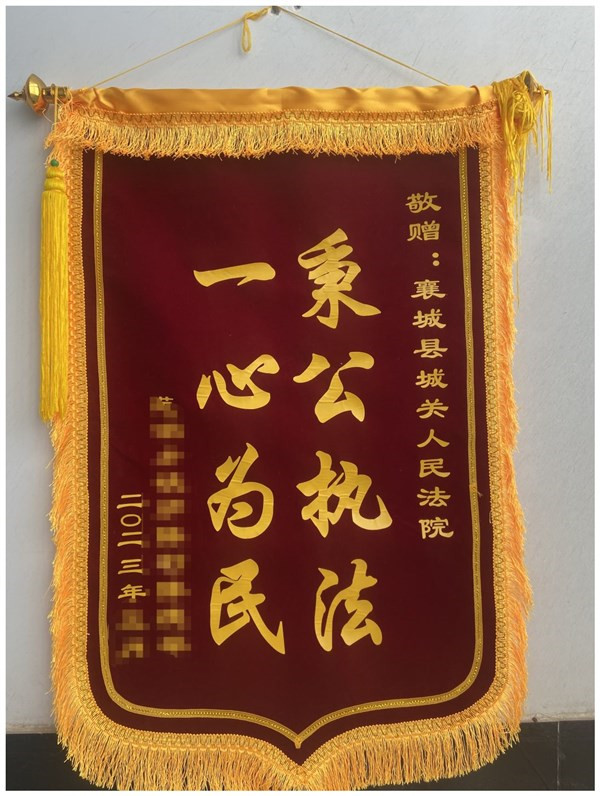 敬赠：襄城县城关人民法院
秉公执法
一心为民
二〇二三年